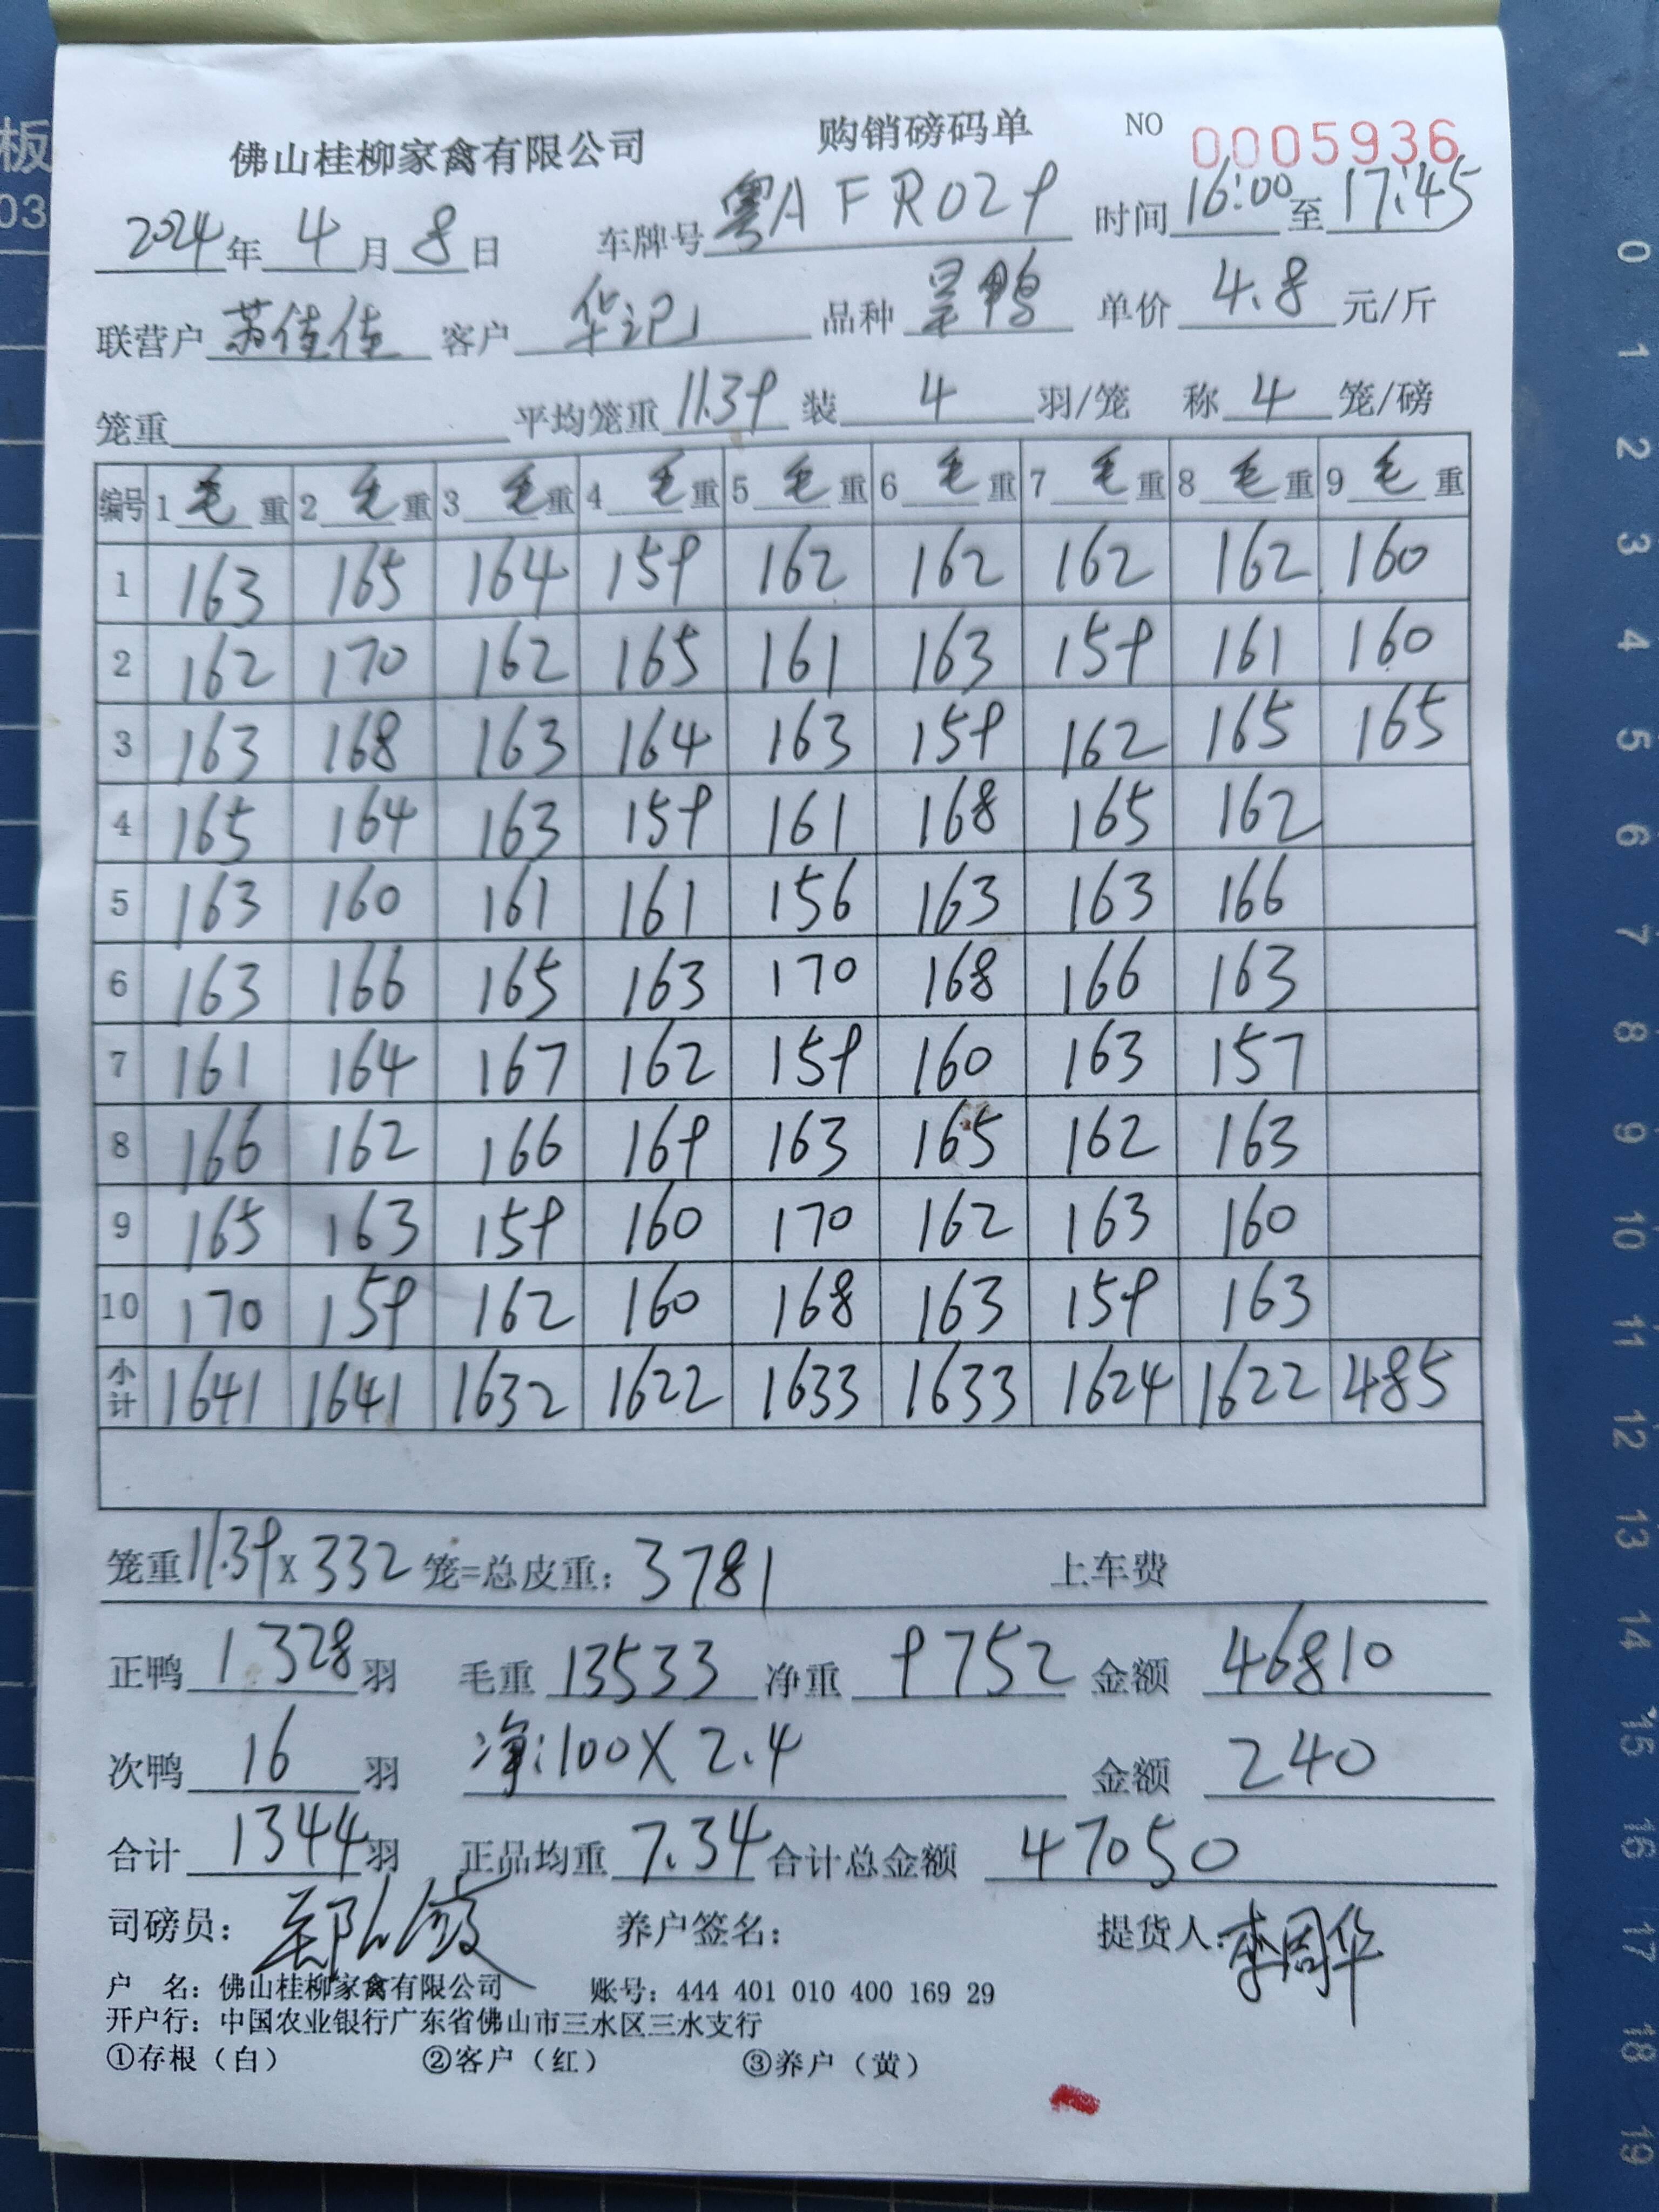 板
03
佛山桂柳家禽有限公司 购销磅码单 NO 0005936
2024年 4月 8日 车牌号 粤AFR029 时间 16:00 至 17:45
联营户 苏佳佳 客户 华记 品种 呈鸭 单价 4.8 元/斤
笼重 平均笼重 11.39 装 4 羽/笼 称 4 笼/磅
编号 1 毛 重 2 毛 重 3 毛 重 4 毛 重 5 毛 重 6 毛 重 7 毛 重 8 毛 重 9 毛 重
1 163 165 164 159 162 162 162 162 160
2 162 170 162 165 161 163 159 161 160
3 163 168 163 164 163 159 162 165 165
4 165 164 163 159 161 168 165 162
5 163 160 161 161 156 163 163 166
6 163 166 165 163 170 168 166 163
7 161 164 167 162 159 160 163 157
8 166 162 166 169 163 165 162 163
9 165 163 159 160 170 162 163 160
10 170 159 162 160 168 163 159 163
小计 1641 1641 1632 1622 1633 1633 1624 1622 485
笼重 11.39 x 332 笼=总皮重: 3781 上车费
正鸭 1328 羽 毛重 13533 净重 9752 金额 46810
次鸭 16 羽 净:100X2.4 金额 240
合计 1344 羽 正品均重 7.34 合计总金额 47050
司磅员: 养户签名: 提货人: 李周华
户 名: 佛山桂柳家禽有限公司 账号: 444 401 010 400 169 29
开户行: 中国农业银行广东省佛山市三水区三水支行
①存根（白） ②客户（红） ③养户（黄）
0
1
2
3
4
5
6
7
8
9
10
11
12
13
14
15
16
17
18
19